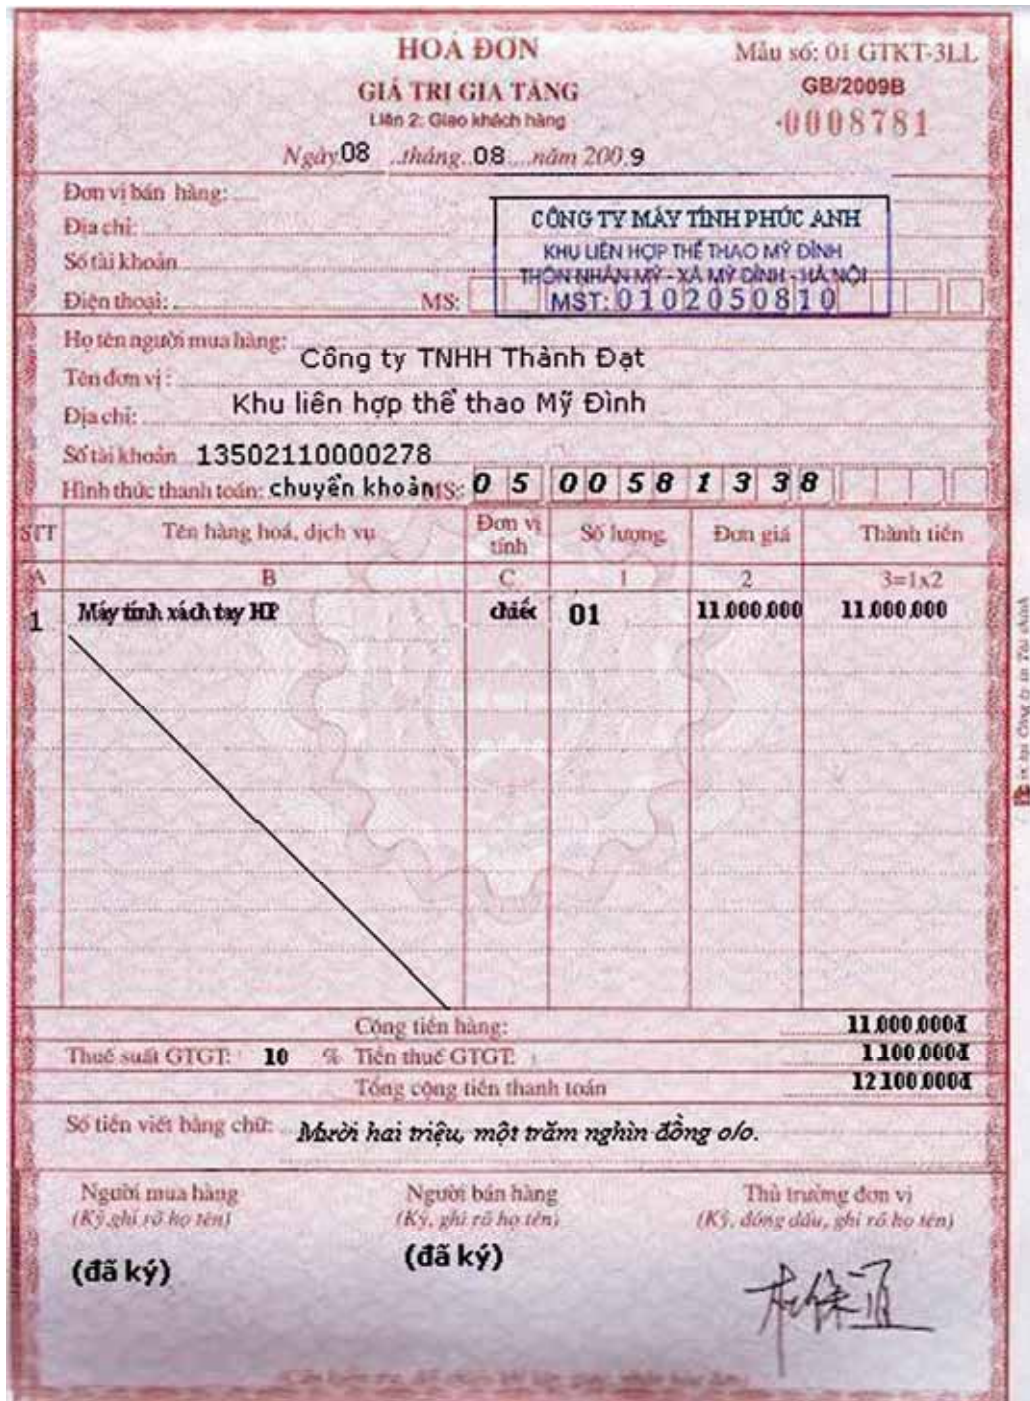 HOÁ ĐƠN
GIÁ TRỊ GIA TĂNG
Liên 2: Giao khách hàng
Mẫu số: 01 GTKT-3LL
GB/2009B
0008781
Ngày 08 tháng 08 năm 200.9
Đơn vị bán hàng:
Địa chỉ:
Số tài khoản
Điện thoại: MS:
CÔNG TY MÁY TÍNH PHÚC ANH
KHU LIÊN HỢP THỂ THAO MỸ ĐÌNH
THÔN NHÂN MỸ - XÃ MỸ ĐÌNH - HÀ NỘI
MST: 0102050810
Họ tên người mua hàng:
Công ty TNHH Thành Đạt
Tên đơn vị:
Địa chỉ: Khu liên hợp thể thao Mỹ Đình
Số tài khoản 13502110000278
Hình thức thanh toán: chuyển khoản MS: 05 0058 1338
STT Tên hàng hoá, dịch vụ Đơn vị tính Số lượng Đơn giá Thành tiền
A B C 1 2 3=1x2
1 Máy tính xách tay HP chiếc 01 11.000.000 11.000.000
Cộng tiền hàng: 11.000.000đ
Thuế suất GTGT: 10 % Tiền thuế GTGT: 1.100.000đ
Tổng cộng tiền thanh toán 12.100.000đ
Số tiền viết bằng chữ: Mười hai triệu, một trăm nghìn đồng o/o.
Người mua hàng Người bán hàng Thủ trưởng đơn vị
(Ký, ghi rõ họ tên) (Ký, ghi rõ họ tên) (Ký, đóng dấu, ghi rõ họ tên)
(đã ký) (đã ký)